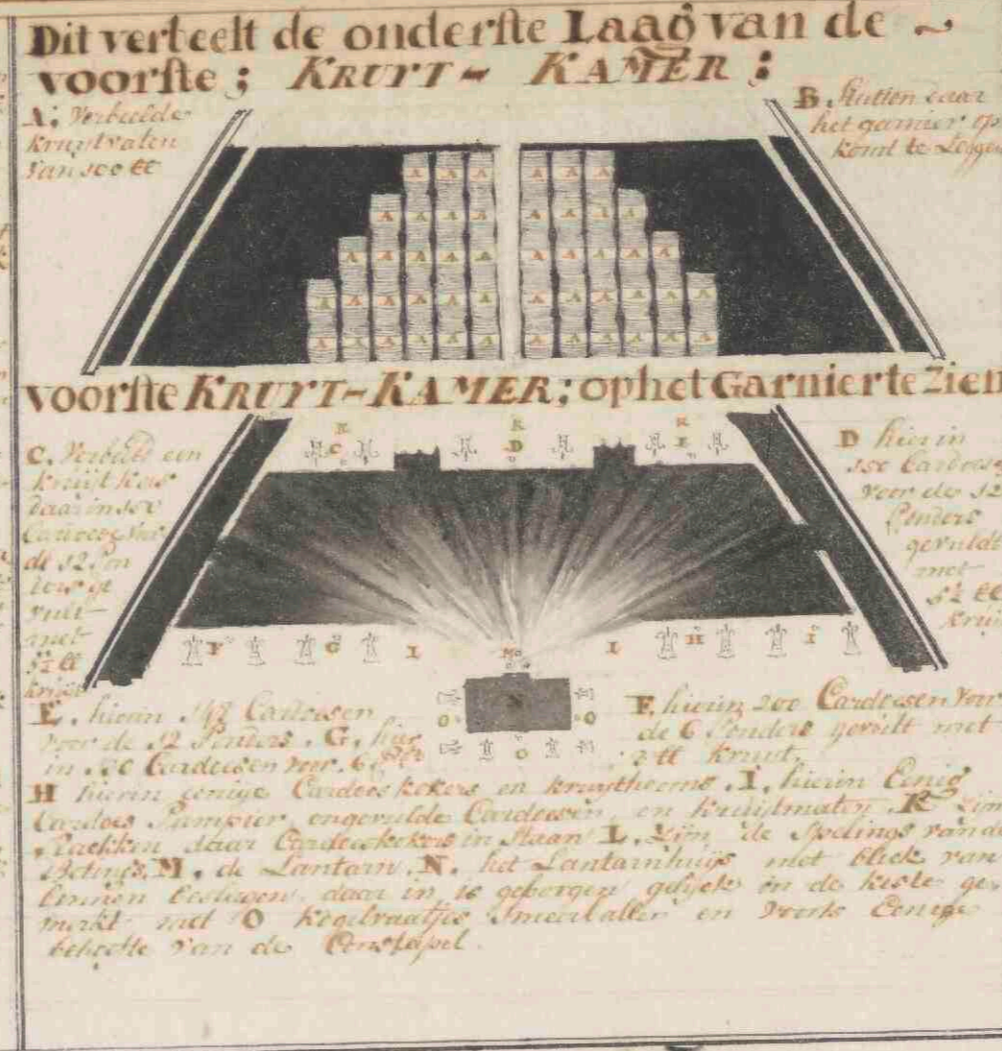 Dit verbeelt de onderste Laag van de ~
voorste; KRUYT- KAMER;
A; Verbeelde
kruytvaten
van 100 ℔
B. Stutten daar
het garnier op
komt te Leggen
A A A A A A
A A A A A A A A
A A A A A A A A A A
A A A A A A A A A A A A
A A A A A A A A A A A A
voorste KRUYT-KAMER; op het Garnier te Zien
K K K
C D E
C. Verbeeld een
kruijt kist
daar in 150
de 12 Pon
ders ge
vult
met
5½ ℔
kruijt
D hier in
150 Cardoese
voor de 12
Ponders
gevuldt
met
5½ ℔
kruit
F G I M L H I
N
O O
O
E. hierin 148 Cardoesen
voor de 12 Ponders. G, hier
in Cardoesen voor 6
F. hierin 200 Cardoesen voor
de 6 Ponders gevult met
℔ kruit.
H hierin eenige Cardoeskokers en kruythoorns. I. hierin Eenig
Cardoes Pampier, ongevulde Cardoesen, en kruijtmaten K zijn
Rackken daar Cardoeskokers in Staan L. zijn de Spelings van de
Betings, M, de Lantarn, N. het Lantarnhuijs met bleck van
binnen beslagen, daar in is geborgen gelijck in de kiste ge-
merkt met O kogelvaatjes en voorts Eenige
behoefte van de Constapel.